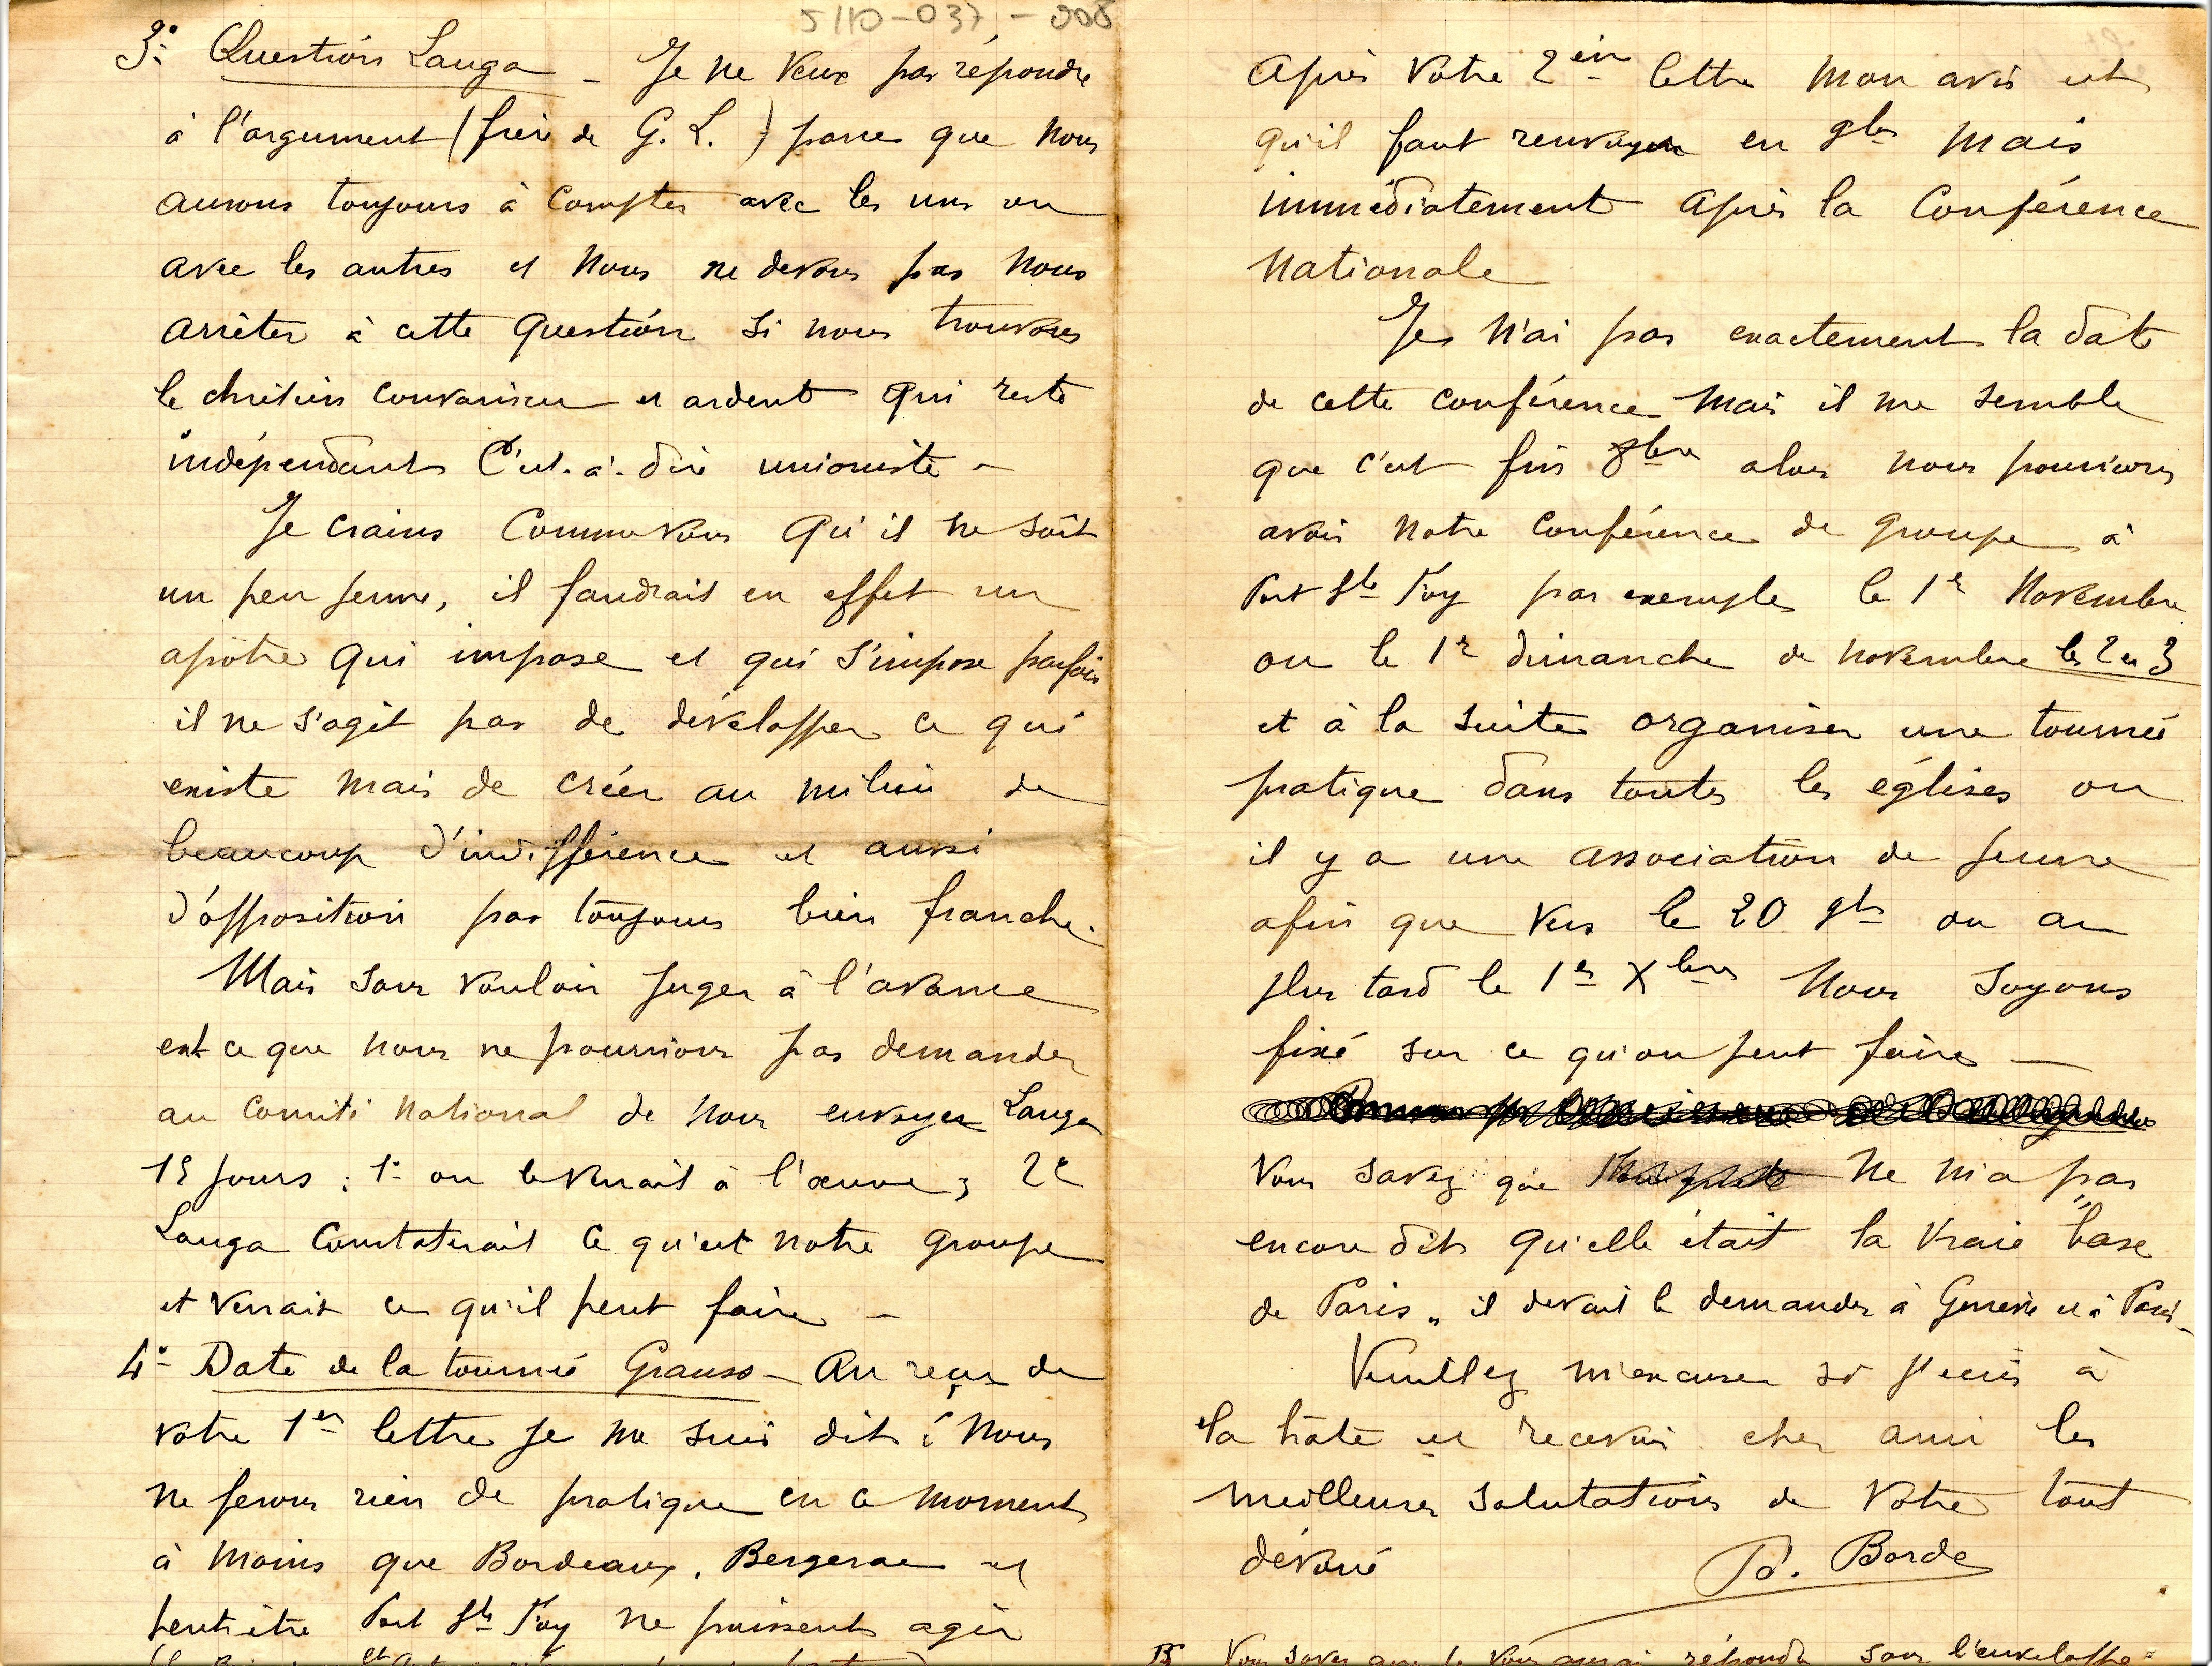 5110-037-008
3º Question Lauga - Je ne veux pas répondre
à l'argument (frère de G. L.) parce que nous
aurons toujours à compter avec les uns ou
avec les autres et nous ne devons pas nous
arrêter à cette question si nous trouvons
le chrétien convaincu et ardent qui reste
indépendant C'est-à-dire unioniste -
Je crains comme vous qu'il ne soit
un peu jeune, il faudrait en effet un
apôtre qui impose et qui s'impose parfois
il ne s'agit pas de développer ce qui
existe mais de créer au milieu de
beaucoup d'indifférence et aussi
d'opposition pas toujours bien franche.
Mais sans vouloir juger à l'avance
est ce que nous ne pourrions pas demander
au Comité National de nous envoyer Lauga
15 jours : 1º on le verrait à l'œuvre, 2º
Lauga constaterait ce qu'est notre groupe
et verrait ce qu'il peut faire -
4º - Date de la tournée Grauss - Au reçu de
votre 1er lettre je me suis dit : nous
ne ferons rien de pratique en ce moment
à moins que Bordeaux, Bergerac et
peut-être Port Ste Foy ne puissent agir
Après votre 2em lettre mon avis est
qu'il faut renvoyer en 9bre mais
immédiatement après la Conférence
Nationale
Je n'ai pas exactement la date
de cette conférence mais il me semble
que c'est fin 8bre alors nous pourrions
avoir notre Conférence de groupe à
Port Ste Foy par exemple le 1er Novembre
ou le 1er dimanche de novembre les 2 et 3
et à la suite organiser une tournée
pratique dans toutes les églises ou
il y a une association de jeune
afin que vers le 20 9bre ou au
plus tard le 1er Xbre nous soyons
fixé sur ce qu'on peut faire -
Vous savez que ne m'a pas
encore dit qu'elle était la vraie "base
de Paris" il devait le demander à Genève et à Paris -
Veuillez m'excuser si j'écris à
la hâte et recevoir cher ami les
meilleures salutations de votre tout
dévoué
Pd. Borde
Vous savez que je vous aurai répondu sans l'enveloppe